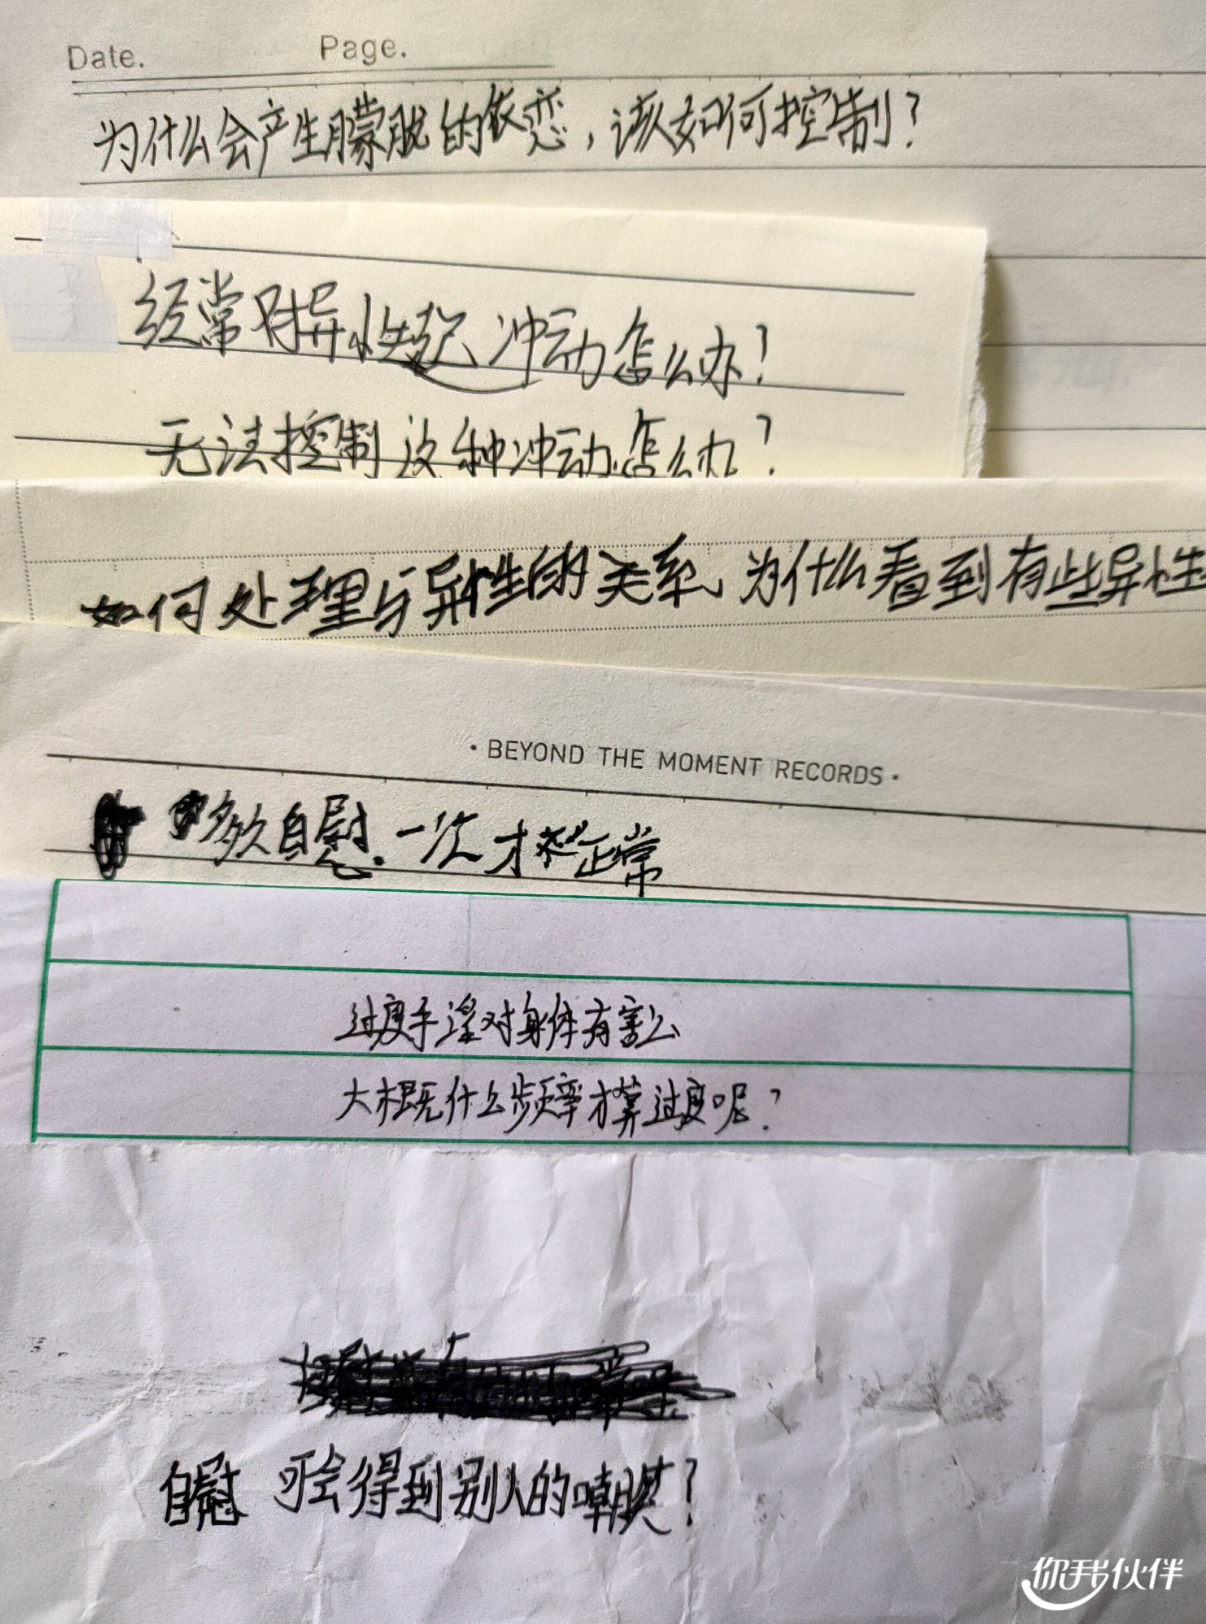 Date. Page.
为什么会产生朦胧的依恋，该如何控制？
经常对异性起冲动怎么办？
无法控制这种冲动怎么办？
如何处理与异性的关系，为什么看到有些异性
· BEYOND THE MOMENT RECORDS ·
多久自慰一次才正常
过度手淫对身体有害么
大概什么频率才算过度呢？
自慰 可会得到别人的嘲笑？
你我伙伴